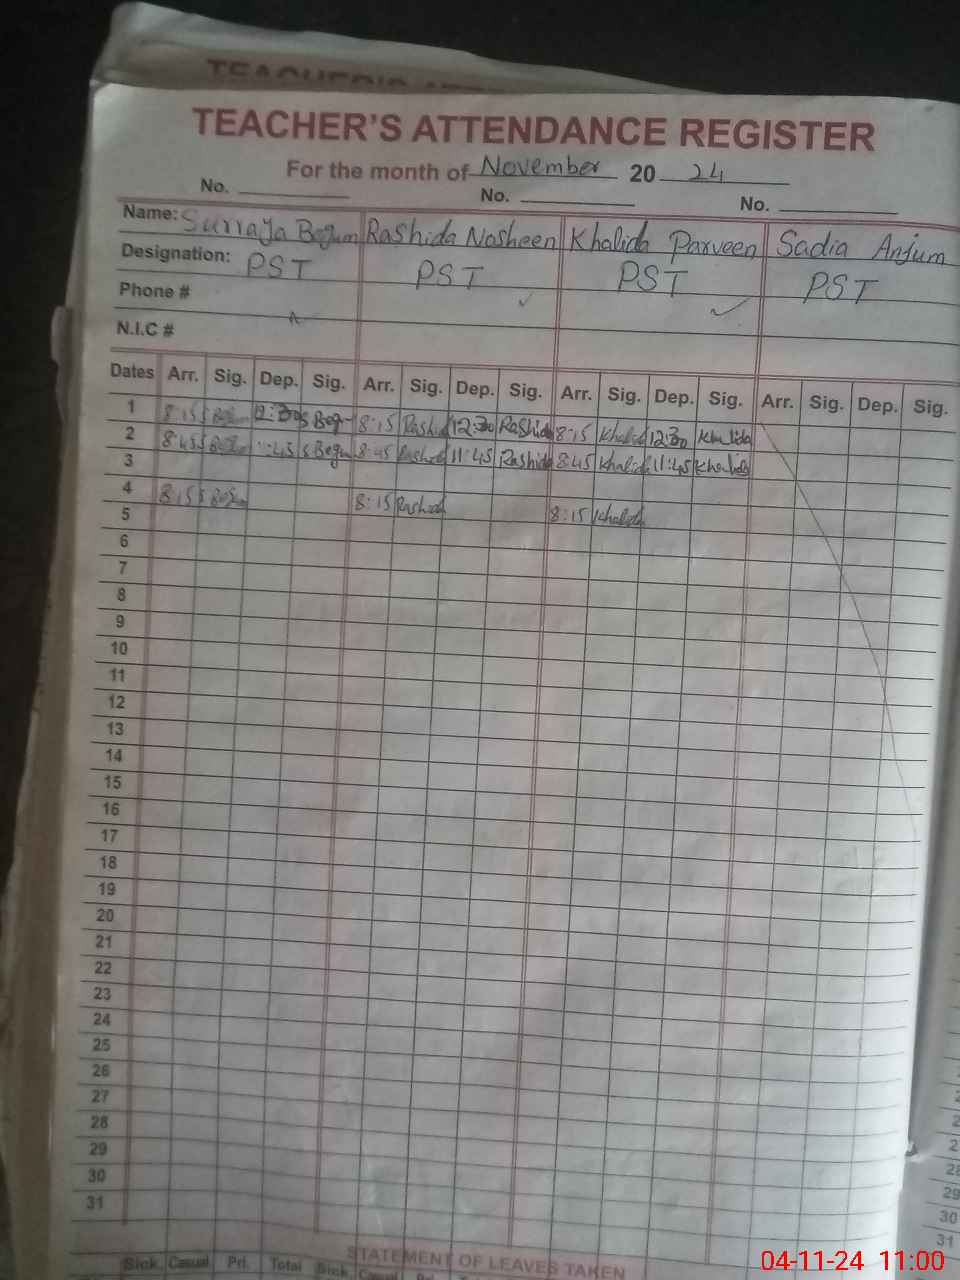 TEACHER'S ATTENDANCE REGISTER
For the month of November 20 24
No. No. No.
Name: Surraya Begum Rashida Nosheen Khalida Parveen Sadia Anjum
Designation: PST PST PST PST
Phone #
N.I.C #
Dates Arr. Sig. Dep. Sig. Arr. Sig. Dep. Sig. Arr. Sig. Dep. Sig. Arr. Sig. Dep. Sig.
1 8:15 S Begum 12:30 S Begum 8:15 Rashida 12:30 Rashida 8:15 Khalida 12:30 Khalida
2 8:45 S Begum 11:45 S Begum 8:45 Rashida 11:45 Rashida 8:45 Khalida 11:45 Khalida
3
4 8:15 S Begum 8:15 Rashida 8:15 Khalida
5
6
7
8
9
10
11
12
13
14
15
16
17
18
19
20
21
22
23
24
25
26
27
28
29
30
31
STATEMENT OF LEAVES TAKEN
Sick Casual Pri. Total Sick Casual Pri.
29
30
31
04-11-24 11:00